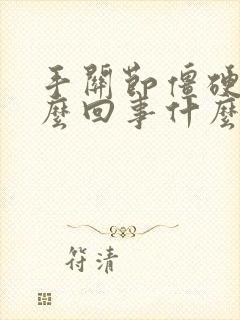 手關節僵硬
麼回事什麼
符清